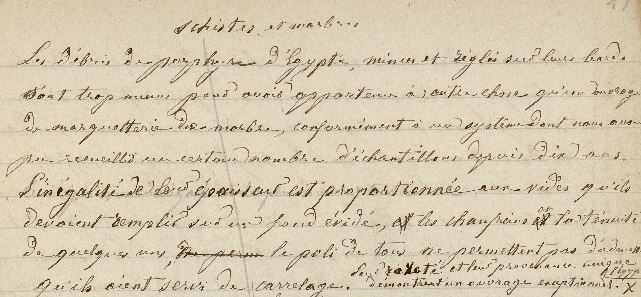 Schistes, et marbres
Les débris de porphyre d'Égypte, minces et réglés sur leurs bords
sont trop menus pour avoir appartenu à autre chose qu'un ouvrage
de marquetterie de marbre, conformément à un système dont nous avons
pu recueilli un certain nombre d'échantillons depuis dix ans.
L'inégalité de leur épaisseur est proportionnée aux vides qu'ils
devaient remplir sur un fond évidé, les chanfreins et la ténuité
de quelques uns, le poli de tous ne permettent pas d'admettre
qu'ils aient servi de carrelage. rareté et leur provenance unique
démontrent un ouvrage exceptionnel.